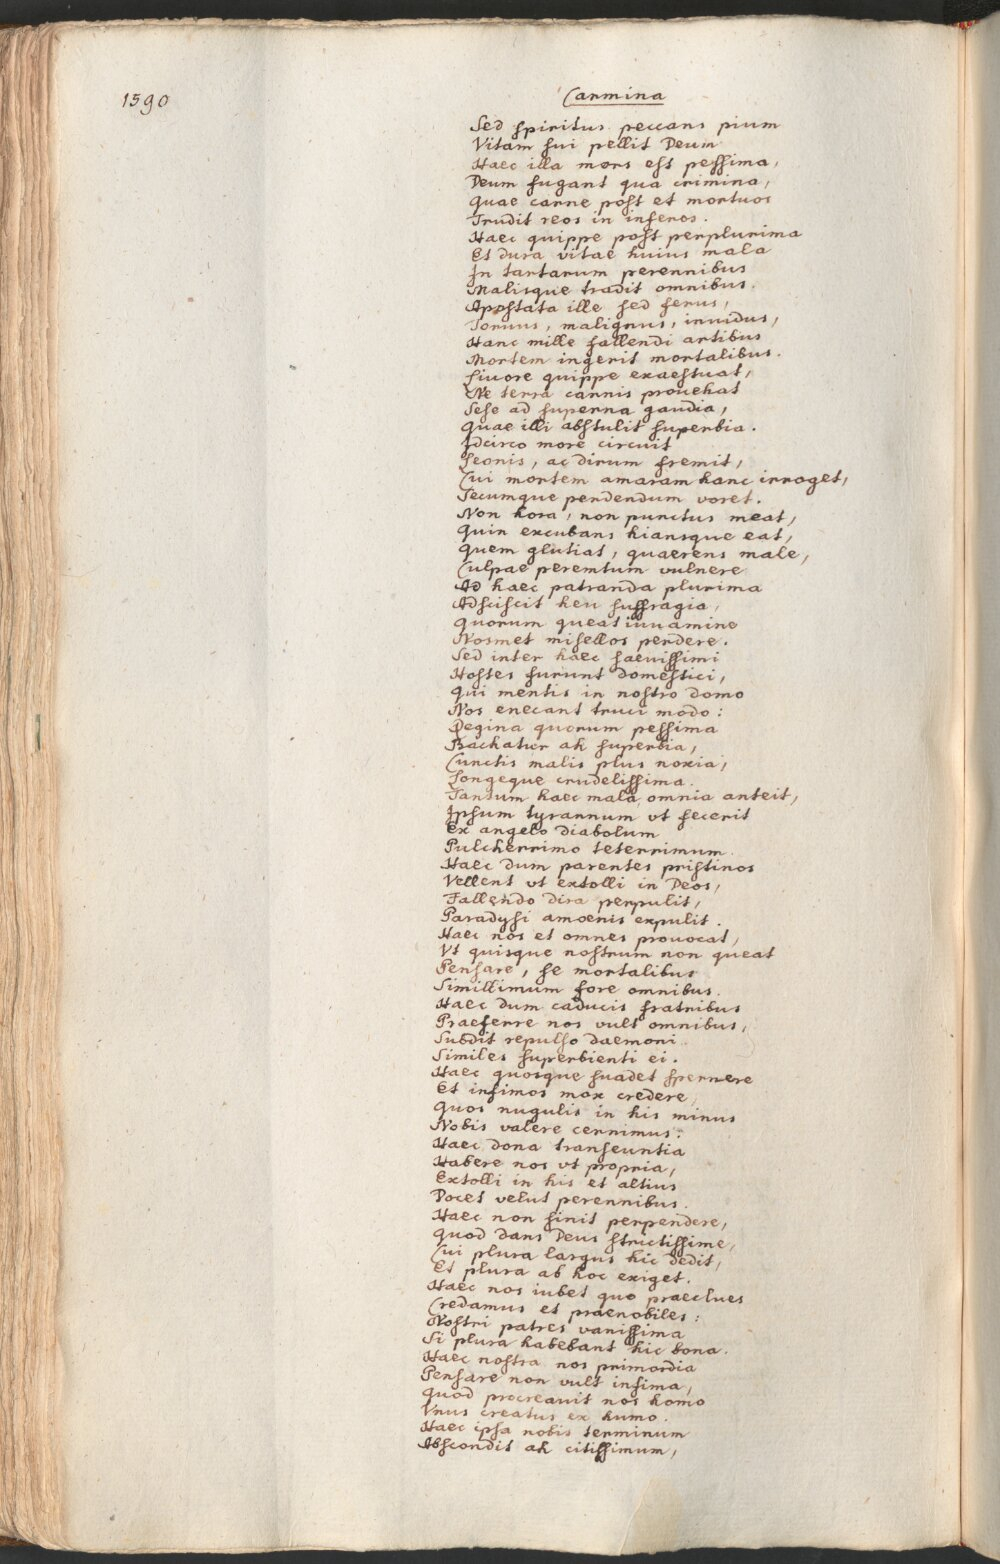 1590
Carmina
Sed spiritus peccans pium
Vitam sui pellit Deum
Haec illa mors est pessima,
Deum fugant qua crimina,
Quae carne post et mortuos
Trudit reos in inferos.
Haec quippe post perplurima
Et dura vitae huius mala
In tartarum perennibus
Malisque tradit omnibus.
Apostata ille sed ferus,
Toruus, malignus, inuidus,
Hanc mille fallendi artibus
Mortem ingerit mortalibus.
Liuore quippe exaestuat,
Ne terra carnis prouehat
Sese ad superna gaudia,
Quae illi abstulit superbia.
Idcirco more circuit
Leonis, ac dirum fremit,
Cui mortem amaram hanc irroget,
Secumque perdendum voret.
Non hora, non punctus meat,
Quin excubans hiansque eat,
Quem glutiat, quaerens male,
Culpae peremtum vulnere
Ad haec patranda plurima
Adsciscit heu suffragia,
Quorum queat iuuamine
Nosmet misellos perdere.
Sed inter haec saeuissimi
Hostes furunt domestici,
Qui mentis in nostro domo
Nos enecant truci modo:
Regina quorum pessima
Bachatur ah superbia,
Cunctis malis plus noxia,
Longeque crudelissima.
Tantum haec mala omnia anteit,
Ipsum tyrannum vt fecerit
Ex angelo diabolum
Pulcherrimo teterrimum.
Haec dum parentes pristinos
Vellent vt extolli in Deos,
Fallendo dira perpulit,
Paradysi amoenis expulit.
Haec nos et omnes prouocat,
Vt quisque nostrum non queat
Pensare, se mortalibus
Simillimum fore omnibus.
Haec dum caducis fratribus
Praeferre nos vult omnibus,
Subdit repulso daemoni
Similes superbienti ei.
Haec quosque suadet spernere
Et infimos mox credere,
Quos nugulis in his minus
Nobis valere cernimus:
Haec dona transeuntia
Habere nos vt propria,
Extolli in his et altius
Docet velut perennibus.
Haec non sinit perpendere,
Quod dans Deus strictissime,
Cui plura largus hic dedit,
Et plura ab hoc exiget.
Haec nos iubet quo praeclues
Credamus et praenobiles:
Nostri patres vanissima
Si plura habebant hic bona.
Haec nostra nos primordia
Pensare non vult infima,
Quod procreauit nos homo
Vnus creatus ex humo.
Haec ipsa nobis terminum
Abscondit ah citissimum,